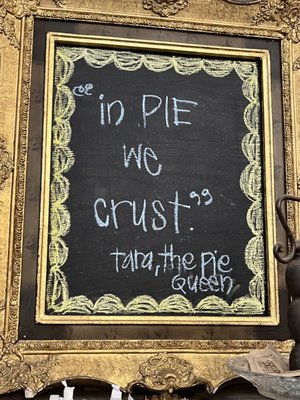 “in PIE
we
crust.”
tara, the pie
Queen